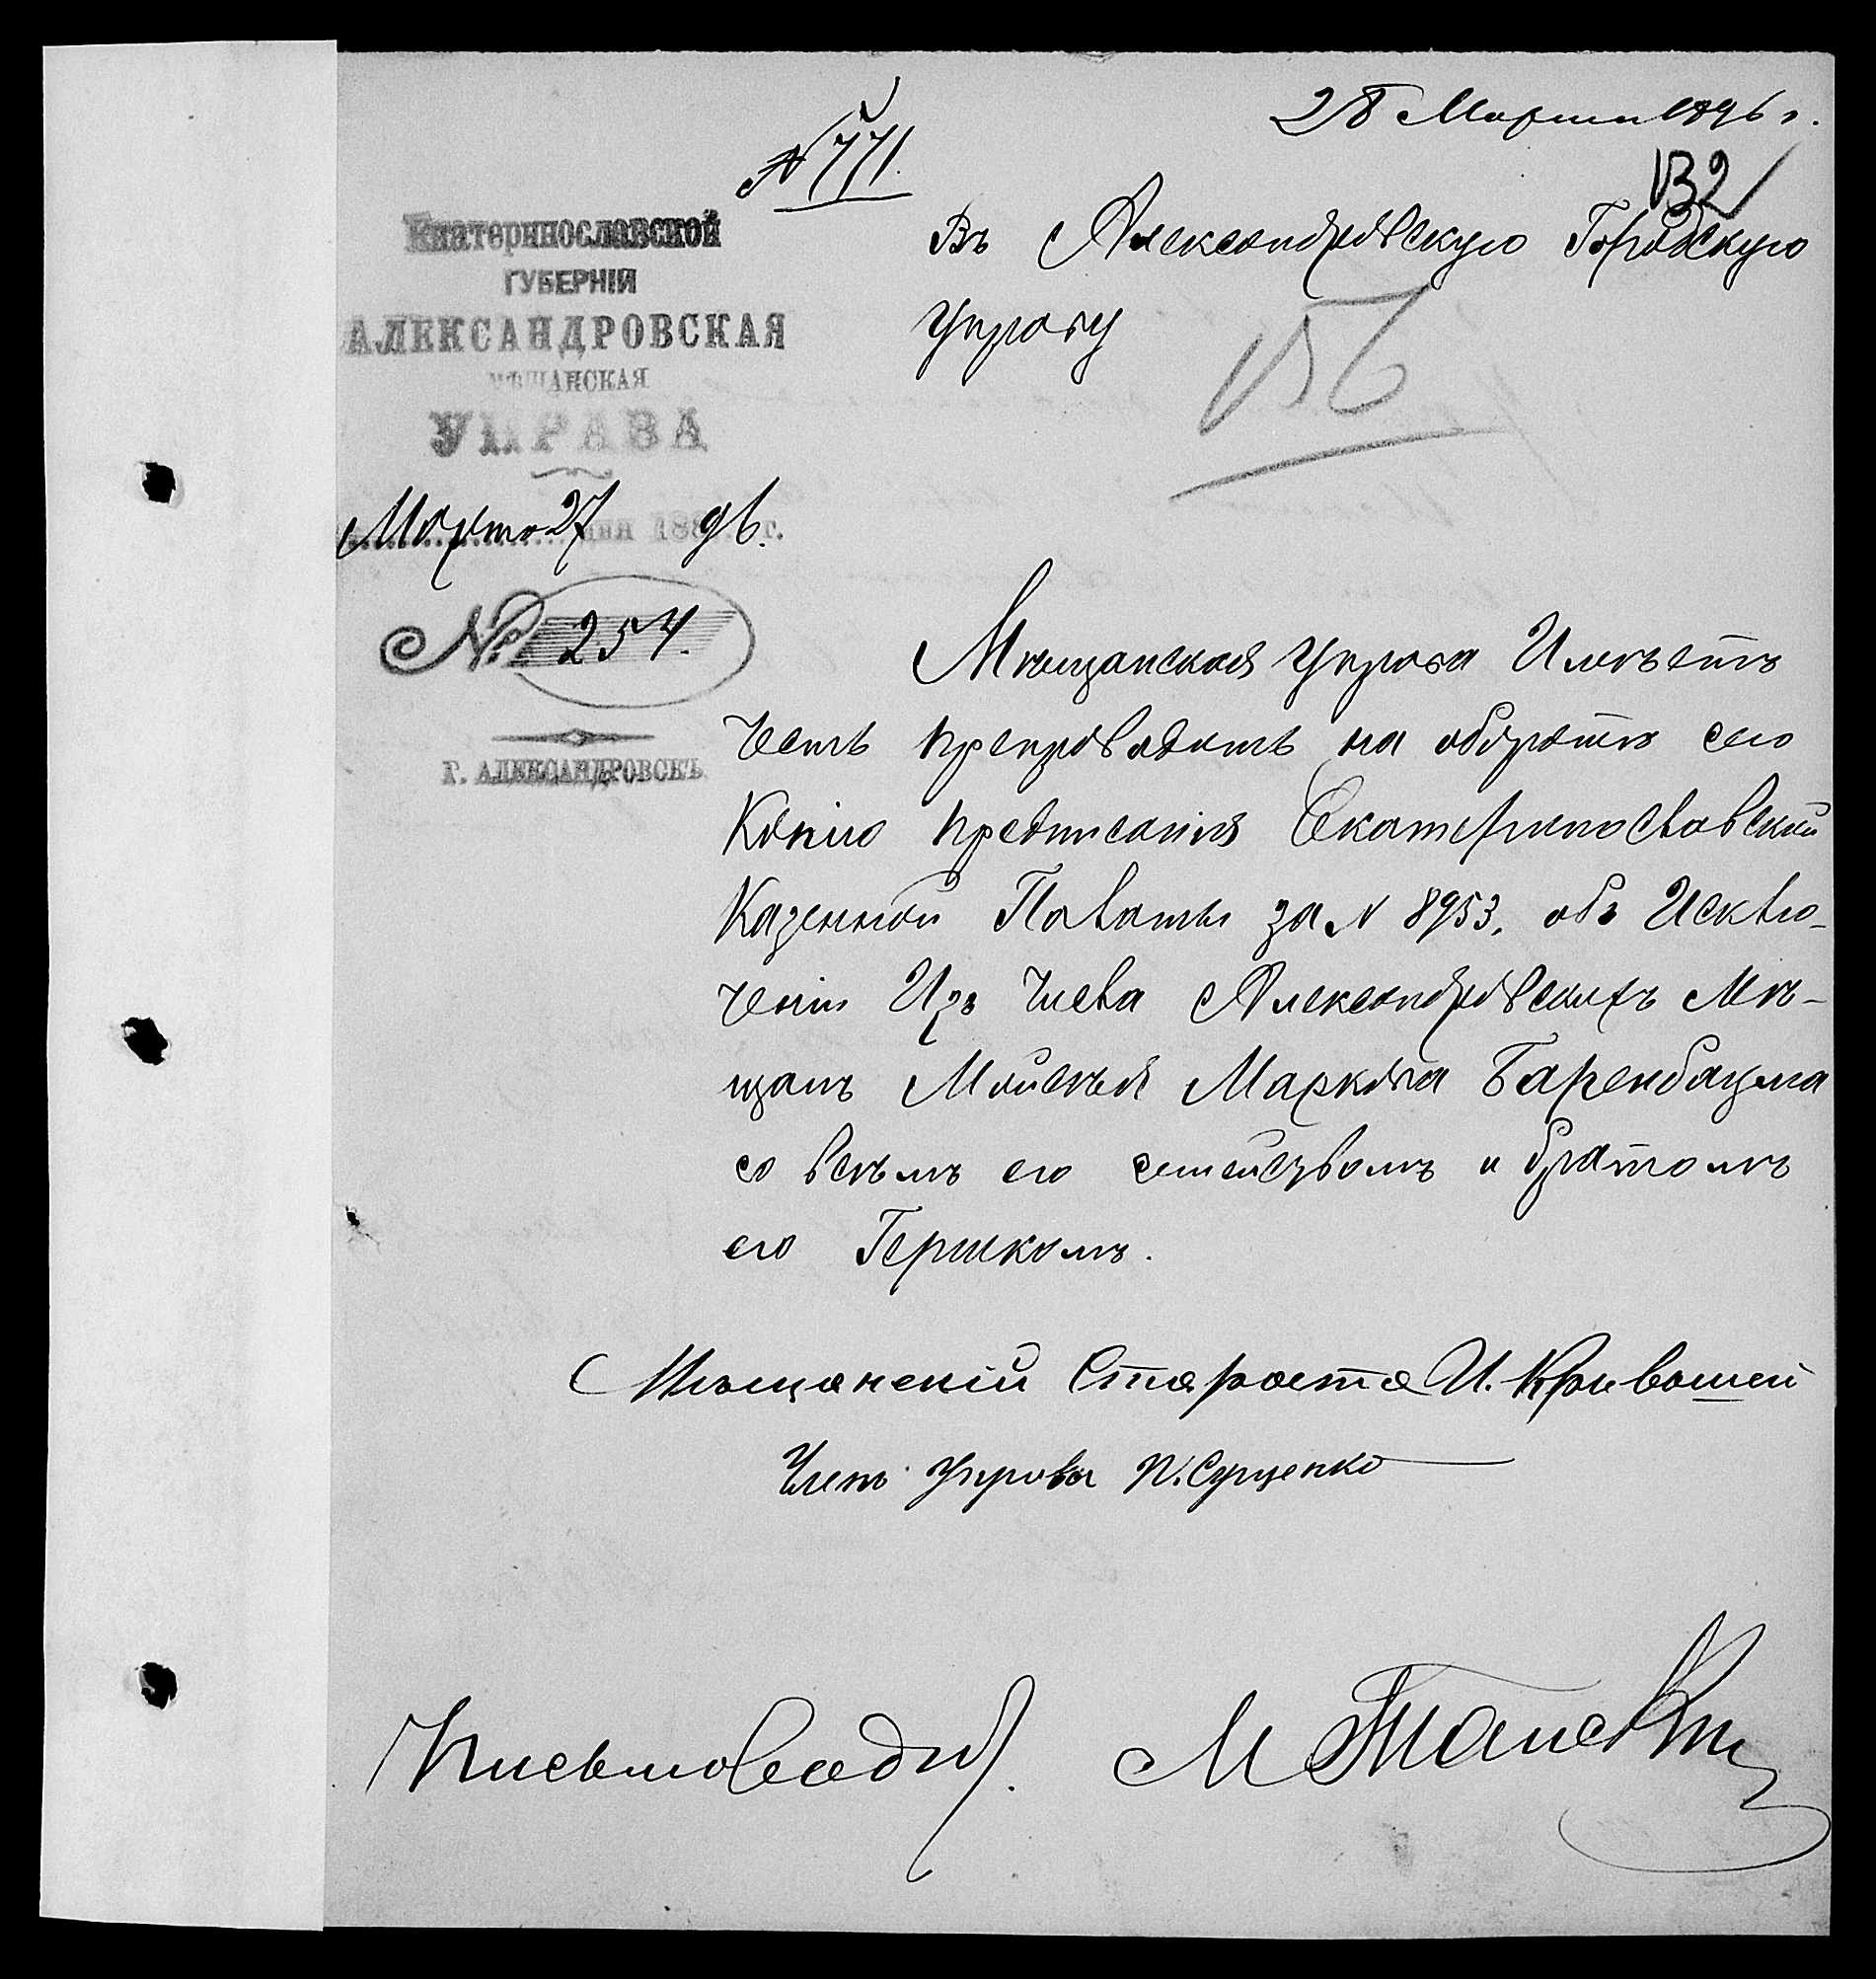 28 Марта 1896 г.
№ 771.
132
Екатеринославской
ГУБЕРНІИ
АЛЕКСАНДРОВСКАЯ
МѢЩАНСКАЯ
УПРАВА
Марта 27 дня 188 96 г.
№ 254.
Г. АЛЕКСАНДРОВСКЪ
Въ Александровскую Городскую
Управу
156
Мѣщанская Управа Имѣетъ
Честь препроводить на оборотѣ сего
Копію предписанія Екатеринославской
Казенной Палаты за № 8953, объ Исклю-
ченіи Изъ Числа Александровскихъ Мѣ-
щанъ Мойсѣя Маркова Баренбаума
со всѣмъ его семействомъ и братомъ
его Гершкомъ.
Мѣщанскій Староста И. Кривошей
Членъ Управы П. Сущенко
Письмовод. М